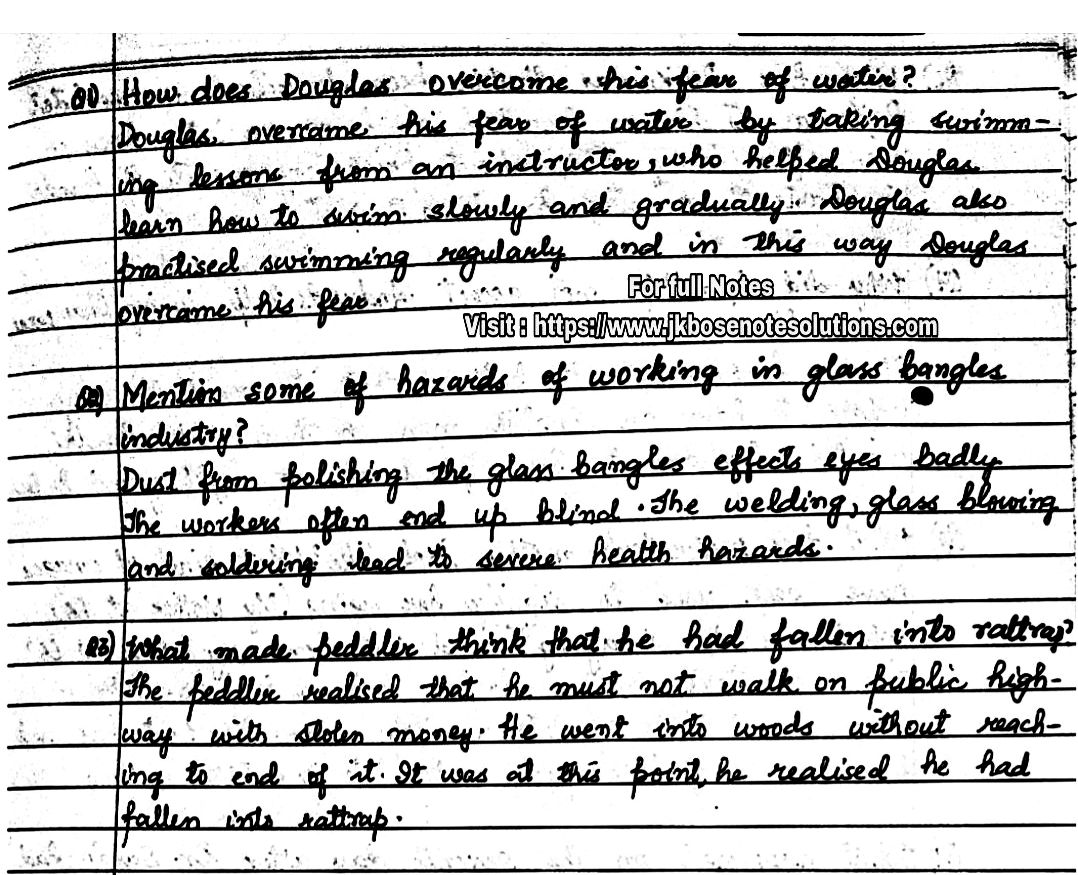 Q1) How does Douglas overcome his fear of water?
Douglas overcame his fear of water by taking swimm-
ing lessons from an instructor, who helped Douglas
learn how to swim slowly and gradually. Douglas also
practised swimming regularly and in this way Douglas
overcame his fear.
For full Notes
Visit : https://www.jkbosenotesolutions.com
Q2) Mention some of hazards of working in glass bangles
industry?
Dust from polishing the glass bangles effects eyes badly
The workers often end up blind. The welding, glass blowing
and soldering lead to severe health hazards.
Q3) What made peddler think that he had fallen into rattrap?
The peddler realised that he must not walk on public high-
way with stolen money. He went into woods without reach-
ing to end of it. It was at this point, he realised he had
fallen into rattrap.